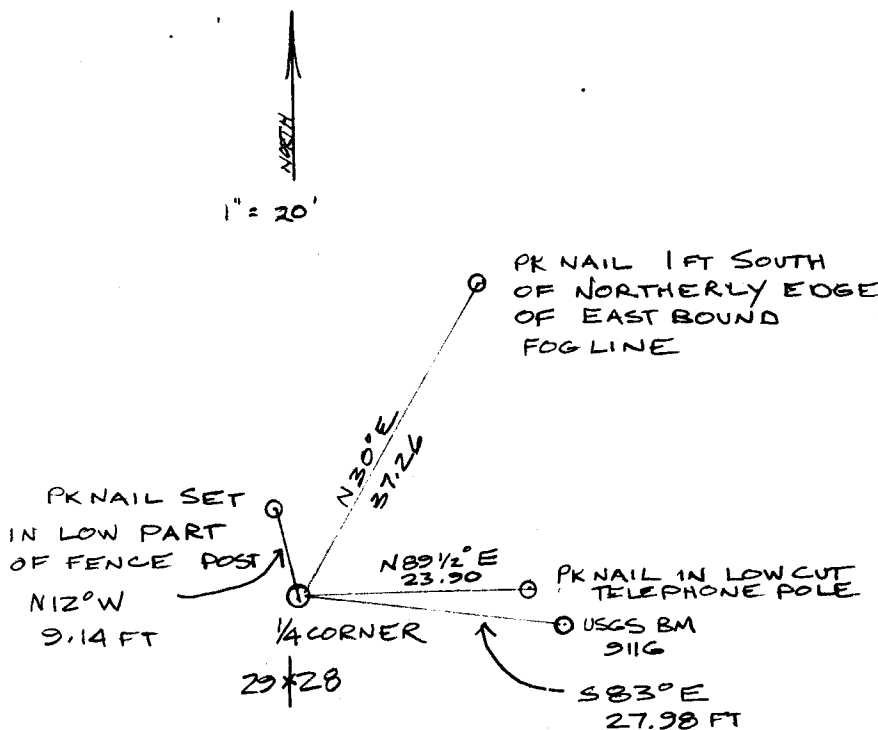 NORTH
1" = 20'
PK NAIL 1 FT SOUTH
OF NORTHERLY EDGE
OF EAST BOUND
FOG LINE
N30°E
37.26
PK NAIL SET
IN LOW PART
OF FENCE POST
N12°W
9.14 FT
N89 1/2° E
23.90
PK NAIL IN LOW CUT
TELEPHONE POLE
1/4 CORNER
29 28
USGS BM
911G
S83°E
27.98 FT